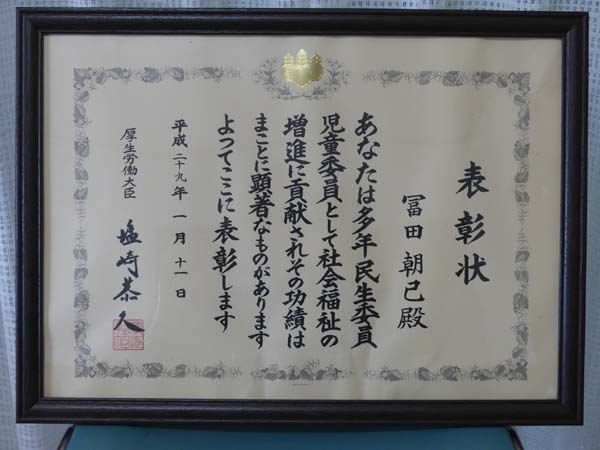 表彰状
冨田朝已殿
あなたは多年民生委員
児童委員として社会福祉の
増進に貢献されその功績は
まことに顕著なものがあります
よってここに表彰します
平成二十九年一月十一日
厚生労働大臣
塩崎恭久